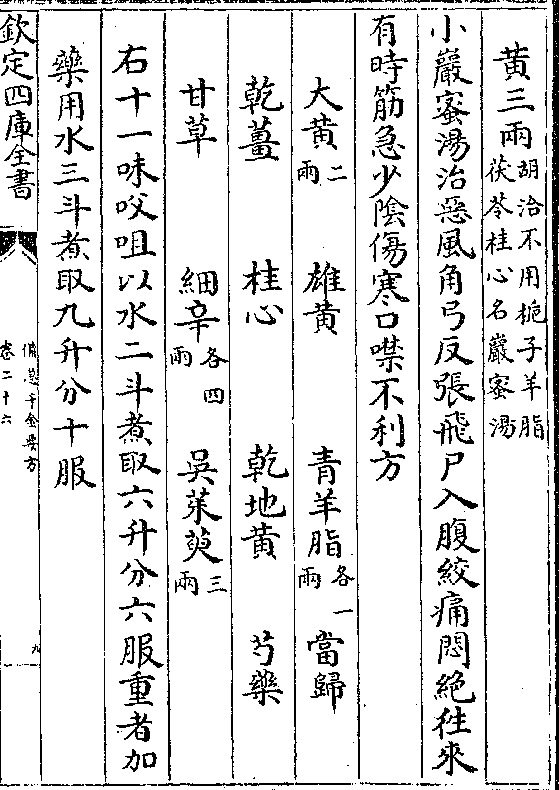 黄三兩胡洽不用梔子羊脂茯苓桂心名巖蜜湯
小巖蜜湯治惡風角弓反張飛尸入腹絞痛悶絶徃來
有時筋急少陰傷寒口噤不利方
大黄二兩 雄黄 青羊脂各一兩 當歸
乾薑 桂心 乾地黄 芍藥
甘草 細辛各四兩 吳茱萸三兩
右十一味㕮咀以水二斗煮取六升分六服重者加
藥用水三斗煮取九升分十服
欽定四庫全書 備急千金要方 卷二十六 九